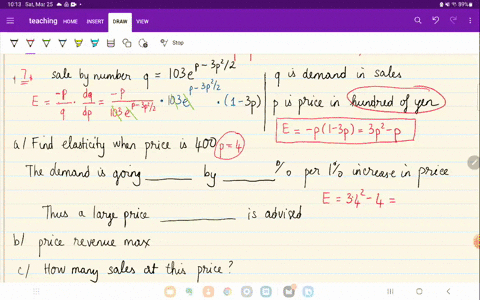 10:13 Sat, Mar 25
89%
teaching HOME INSERT DRAW VIEW
Stop
7 sale by number q = 103e^{p-3p²/2} q is demand in sales
E = -p/q · dq/dp = -p/103e^{p-3p²/2} · 103e^{p-3p²/2} · (1-3p) p is price in hundred of yen
E = -p(1-3p) = 3p²-p
a/ Find elasticity when price is 400 p=4
The demand is going ____ by ____ % per 1% increase in price
E = 3·4² - 4 =
Thus a large price ____ is advised
b/ price revenue max
c/ How many sales at this price?